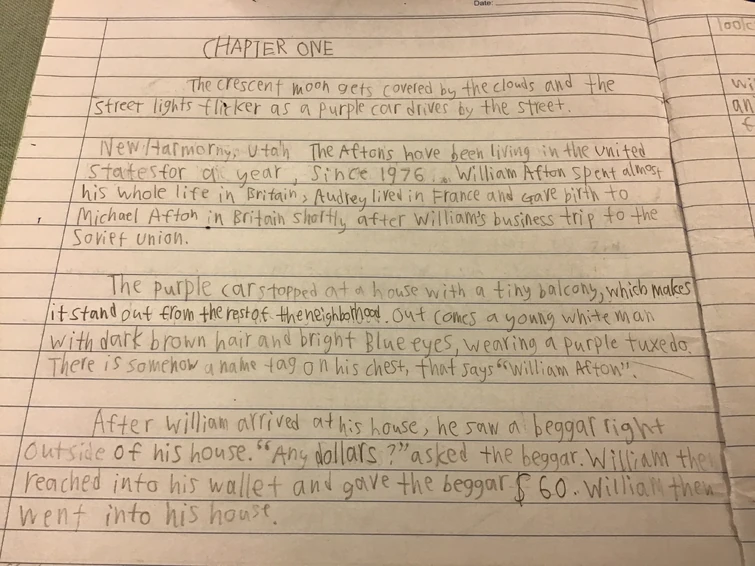 Date:
CHAPTER ONE
The crescent moon gets covered by the clouds and the
street lights flicker as a purple car drives by the street.
New Harmorny, Utah The Aftons have been living in the united
states for a year, since 1976. William Afton spent almost
his whole life in Britain, Audrey lived in France and gave birth to
Michael Afton in Britain shortly after William's business trip to the
Soviet union.
The purple car stopped at a house with a tiny balcony, which makes
it stand out from the rest of the neighborhood. Out comes a young white man
with dark brown hair and bright Blue eyes, wearing a purple tuxedo.
There is somehow a name tag on his chest, that says "William Afton".
After William arrived at his house, he saw a beggar right
outside of his house. "Any dollars?" asked the beggar. William then
reached into his wallet and gave the beggar $60. William then
went into his house.